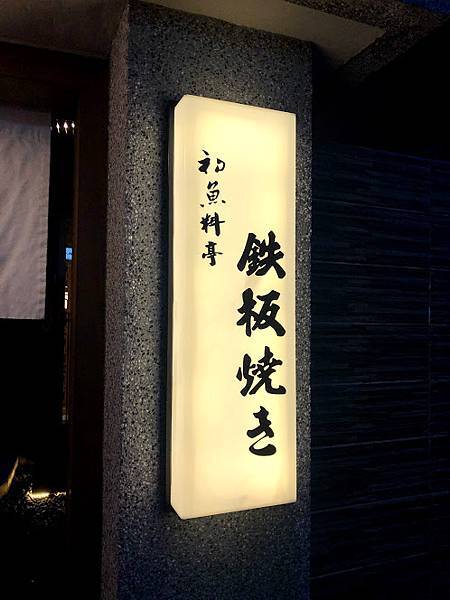 初魚料亭
鉄板焼き